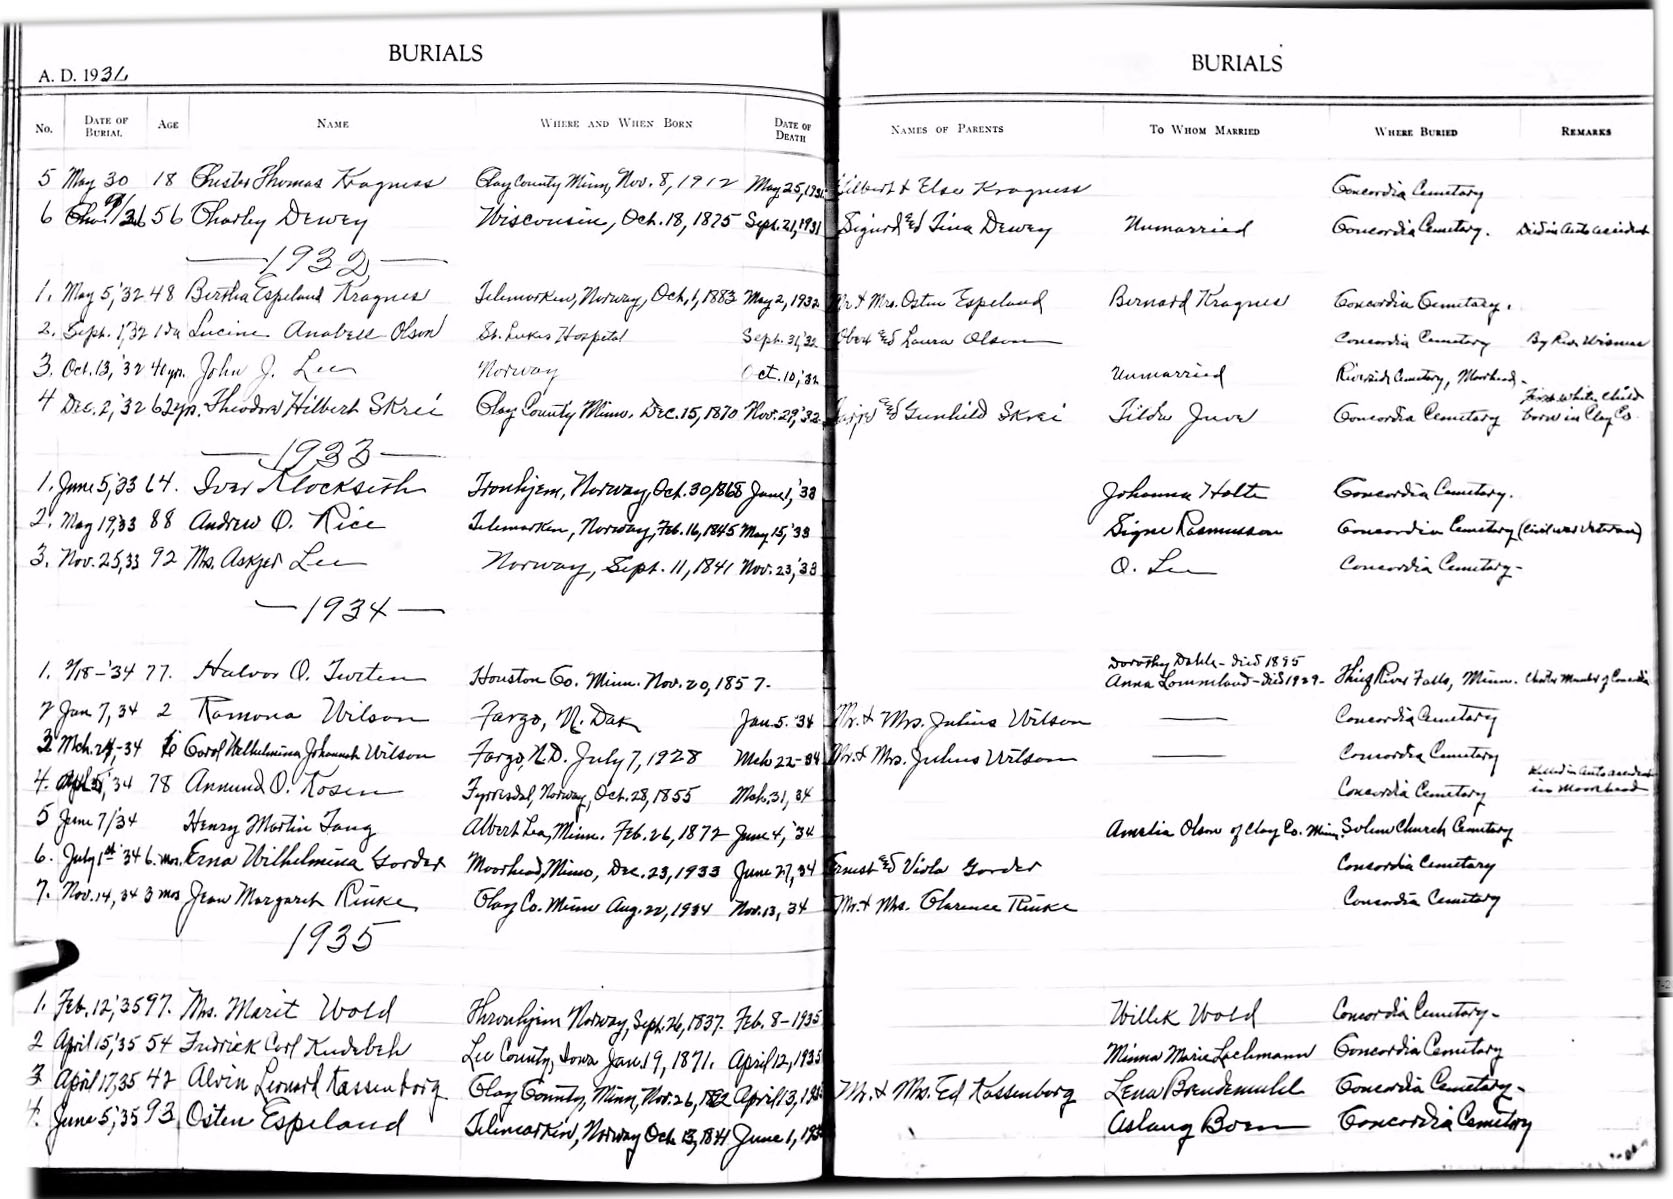 BURIALS
A. D. 1931
No. DATE OF BURIAL AGE NAME WHERE AND WHEN BORN DATE OF DEATH
BURIALS
NAMES OF PARENTS TO WHOM MARRIED WHERE BURIED REMARKS
5 May 30 18 Chester Thomas Kragness Clay County Minn, Nov. 8, 1912 May 25, 1931 Hilbert & Else Kragness Concordia Cemetary
6 56 Charley Dewey Wisconsin, Oct. 18, 1875 Sept. 21, 1931 Sigurd and Tina Dewey Unmarried Concordia Cemetary. Died in Auto accident
—1932—
1. May 5, '32 48 Bertha Espeland Kragnes Telemarken, Norway, Oct. 1, 1883 May 2, 1932 Mr & Mrs. Osten Espeland Bernard Kragnes Concordia Cemetary.
2. Sept. 1, '32 1da Lucine Anabell Olson St. Lukes Hospital Sept. 31, '32 Obert and Laura Olson Concordia Cemetary By Rev.
3. Oct. 13, '32 40yrs. John J. Lee Norway Oct. 10, '32 Unmarried Riverside Cemetary, Moorhead -
4 Dec. 2, '32 62yrs. Theodore Hilbert Skrei Clay County Minn. Dec. 15, 1870 Nov. 29, '32 and Gunhild Skrei Tilda Juve Concordia Cemetary First White child born in Clay Co.
—1933—
1. June 5, '33 64. Iver Klocksith Tronhjem, Norway, Oct. 30, 1868 June 1, '33 Johanna Holte Concordia Cemetary.
2. May 19, 33 88 Andrew O. Rice Telemarken, Norway, Feb. 16, 1845 May 15, '33 Signe Rasmusson Concordia Cemetary (Civil war Veteran)
3. Nov. 25, 33 92 Mrs. Askjer Lee Norway, Sept. 11, 1841 Nov. 23, '33 O. Lee Concordia Cemetary -
—1934—
1. 2/18 - '34 77. Halvor O. Tveten Houston Co. Minn. Nov. 20, 1857. Dorothy Dahle - died 1895
Anna Lommeland - died 1929 - Thief River Falls, Minn. Charter Member of Concordia
2 Jan 7, 34 2 Ramona Wilson Fargo, N. Dak Jan. 5. '34 Mr. & Mrs. Julius Wilson —— Concordia Cemetary
3 Mch. 24, -34 Carol Wilhelmina Johannah Wilson Fargo, N.D. July 7, 1928 Mch 22 - 34 Mr. & Mrs. Julius Wilson —— Concordia Cemetary
4. '34 78 Annund O. Rosen Fyrresdal, Norway, Oct. 28, 1855 Mch. 31, 34 Concordia Cemetary Killed in auto accident in Moorhead
5 June 7/34 Henry Martin Tang Albert Lea, Minn. Feb. 26, 1872 June 4, '34 Amelia Olson of Clay Co. Minn. Solem Church Cemetary
6. July 1st '34 6. mos. Erna Wilhelmina Gorder Moorhead, Minn, Dec. 23, 1933 June 27, 34 Ernest and Viola Gorder Concordia Cemetary
7. Nov. 14, 34 3 mos Jean Margareth Rinke Clay Co. Minn Aug. 22, 1934 Nov. 13, 34 Mr. & Mrs. Clarence Rinke Concordia Cemetary
1935
1. Feb. 12, '35 97. Mrs. Marit Wold Thronhjem Norway, Sept. 26, 1837. Feb. 8 - 1935 Willik Wold Concordia Cemetary -
2 April 15, '35 54 Fredrick Carl Lee County, Iowa Jan. 19, 1871. April 12, 1935 Minna Marie Lachmann Concordia Cemetary
3 April 17, 35 42 Alvin Leonard Kassenborg Clay County, Minn, Nov. 26, April 13, Mr. & Mrs. Ed Kassenborg Lena Brendemuhl Concordia Cemetary -
4. June 5, '35 93 Osten Espeland Telemarken, Norway Oct. 13, 1841 June 1, Aslaug Boen Concordia Cemetary